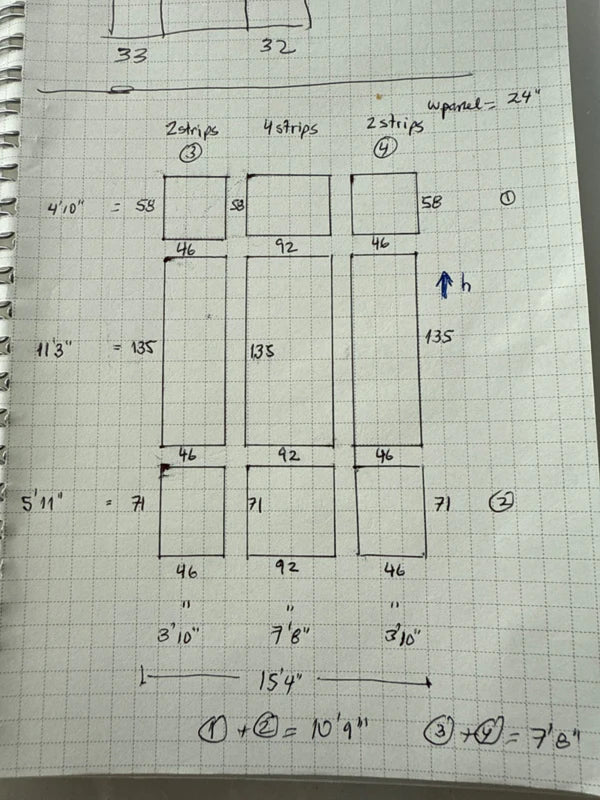 33 32
wpanel = 24"
2 strips 4 strips 2 strips
③ ④
4'10" = 58 58 58 ①
46 92 46
↑ h
11'3" = 135 135 135
46 92 46
5'11" = 71 71 71 ②
46 92 46
" " "
3'10" 7'8" 3'10"
15'4"
① + ② = 10'9"' ③ + ④ = 7'8"